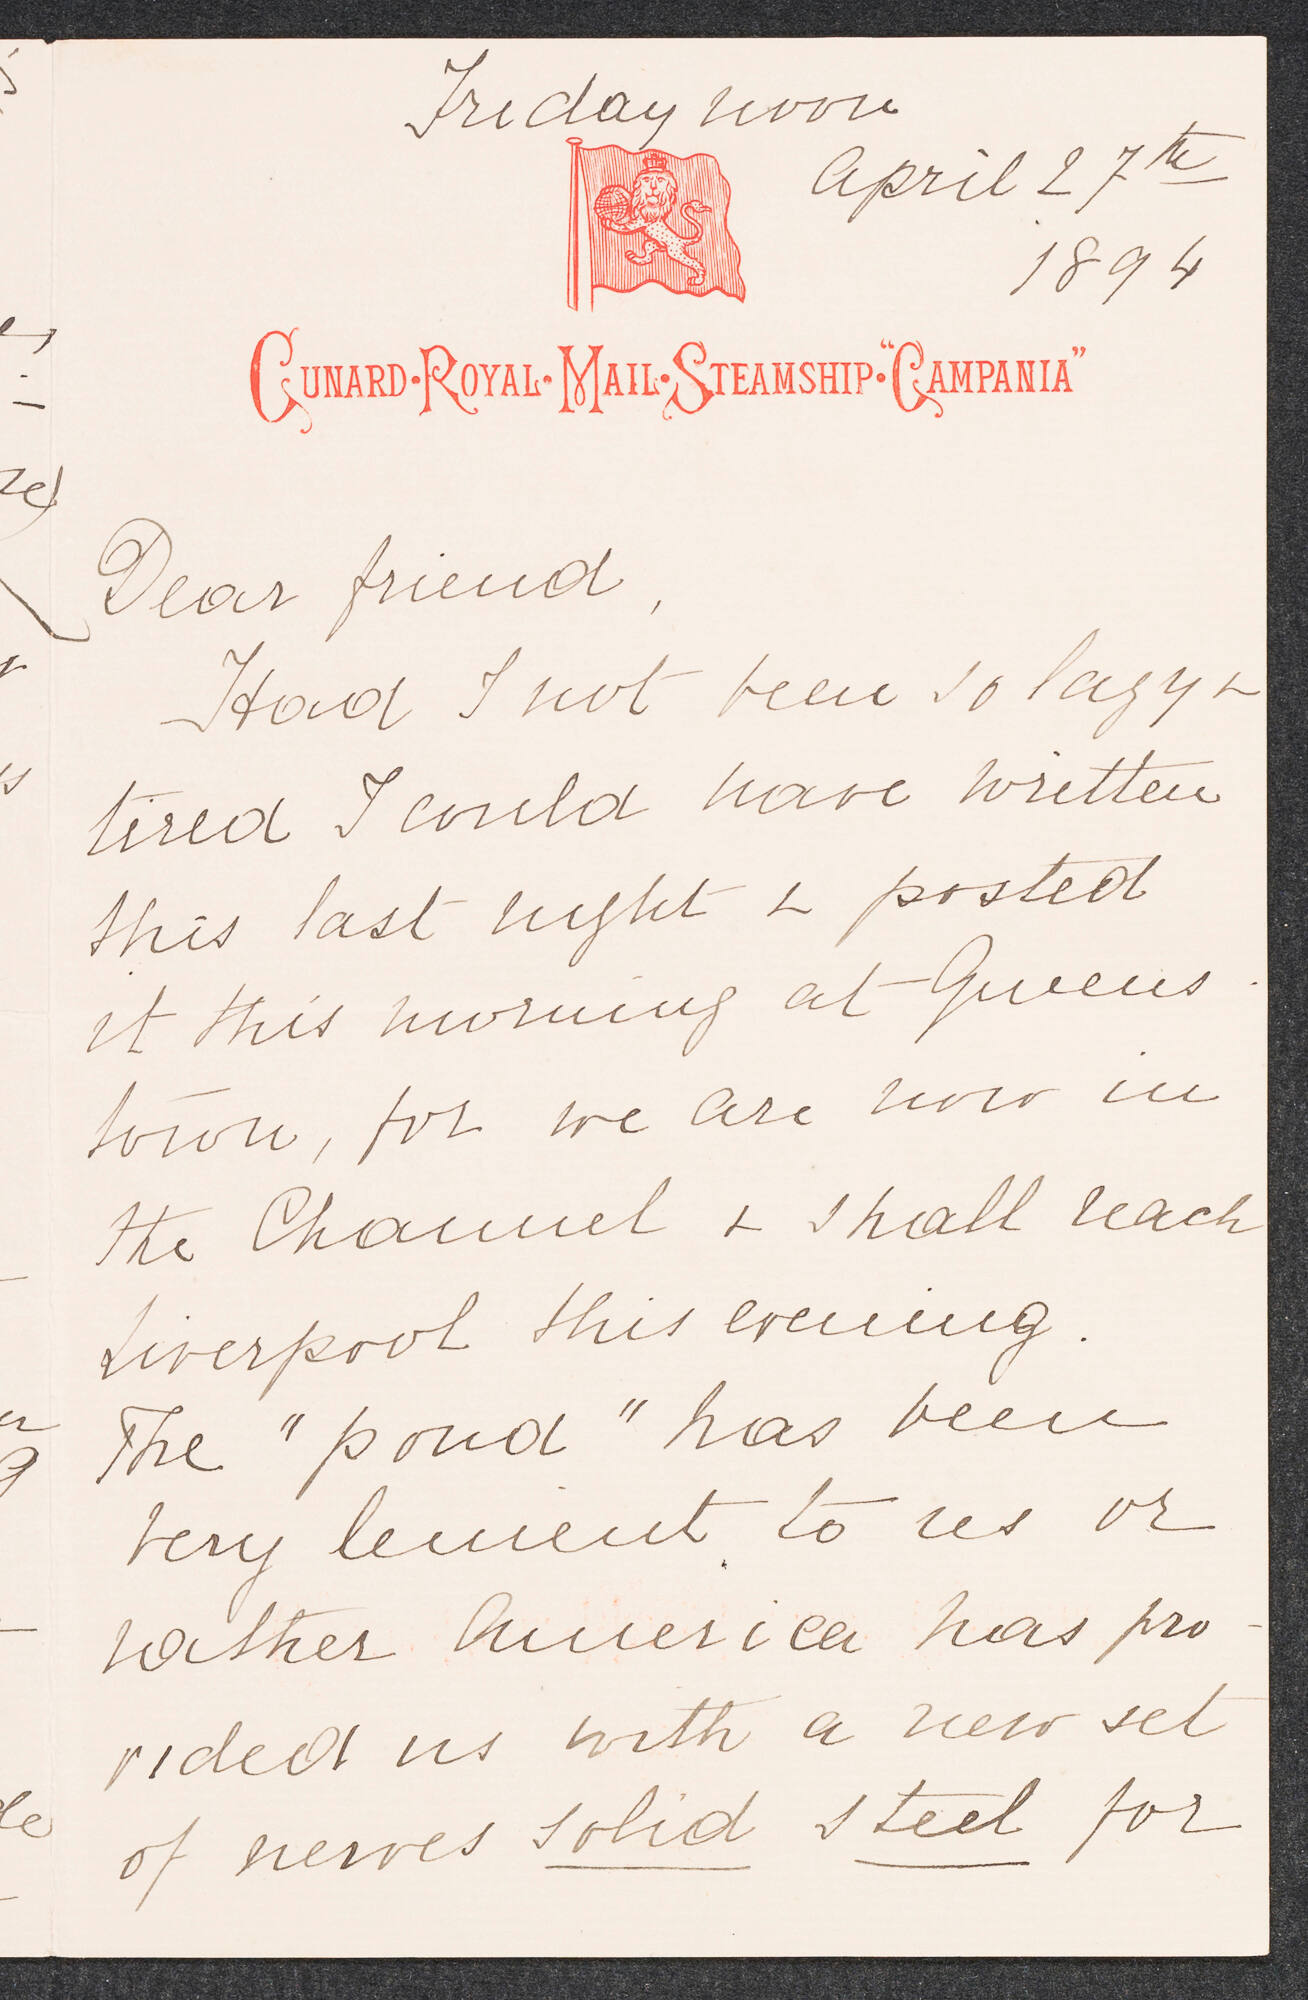 Friday noon
April 27th
1894
CUNARD·ROYAL·MAIL·STEAMSHIP·"CAMPANIA"
Dear friend,
Had I not been so lazy &
tired I could have written
this last night & posted
it this morning at Queens-
town, for we are now in
the Channel & shall reach
Liverpool this evening.
The "pond" has been
very lenient to us or
rather America has pro-
vided us with a new set
of nerves solid steel for